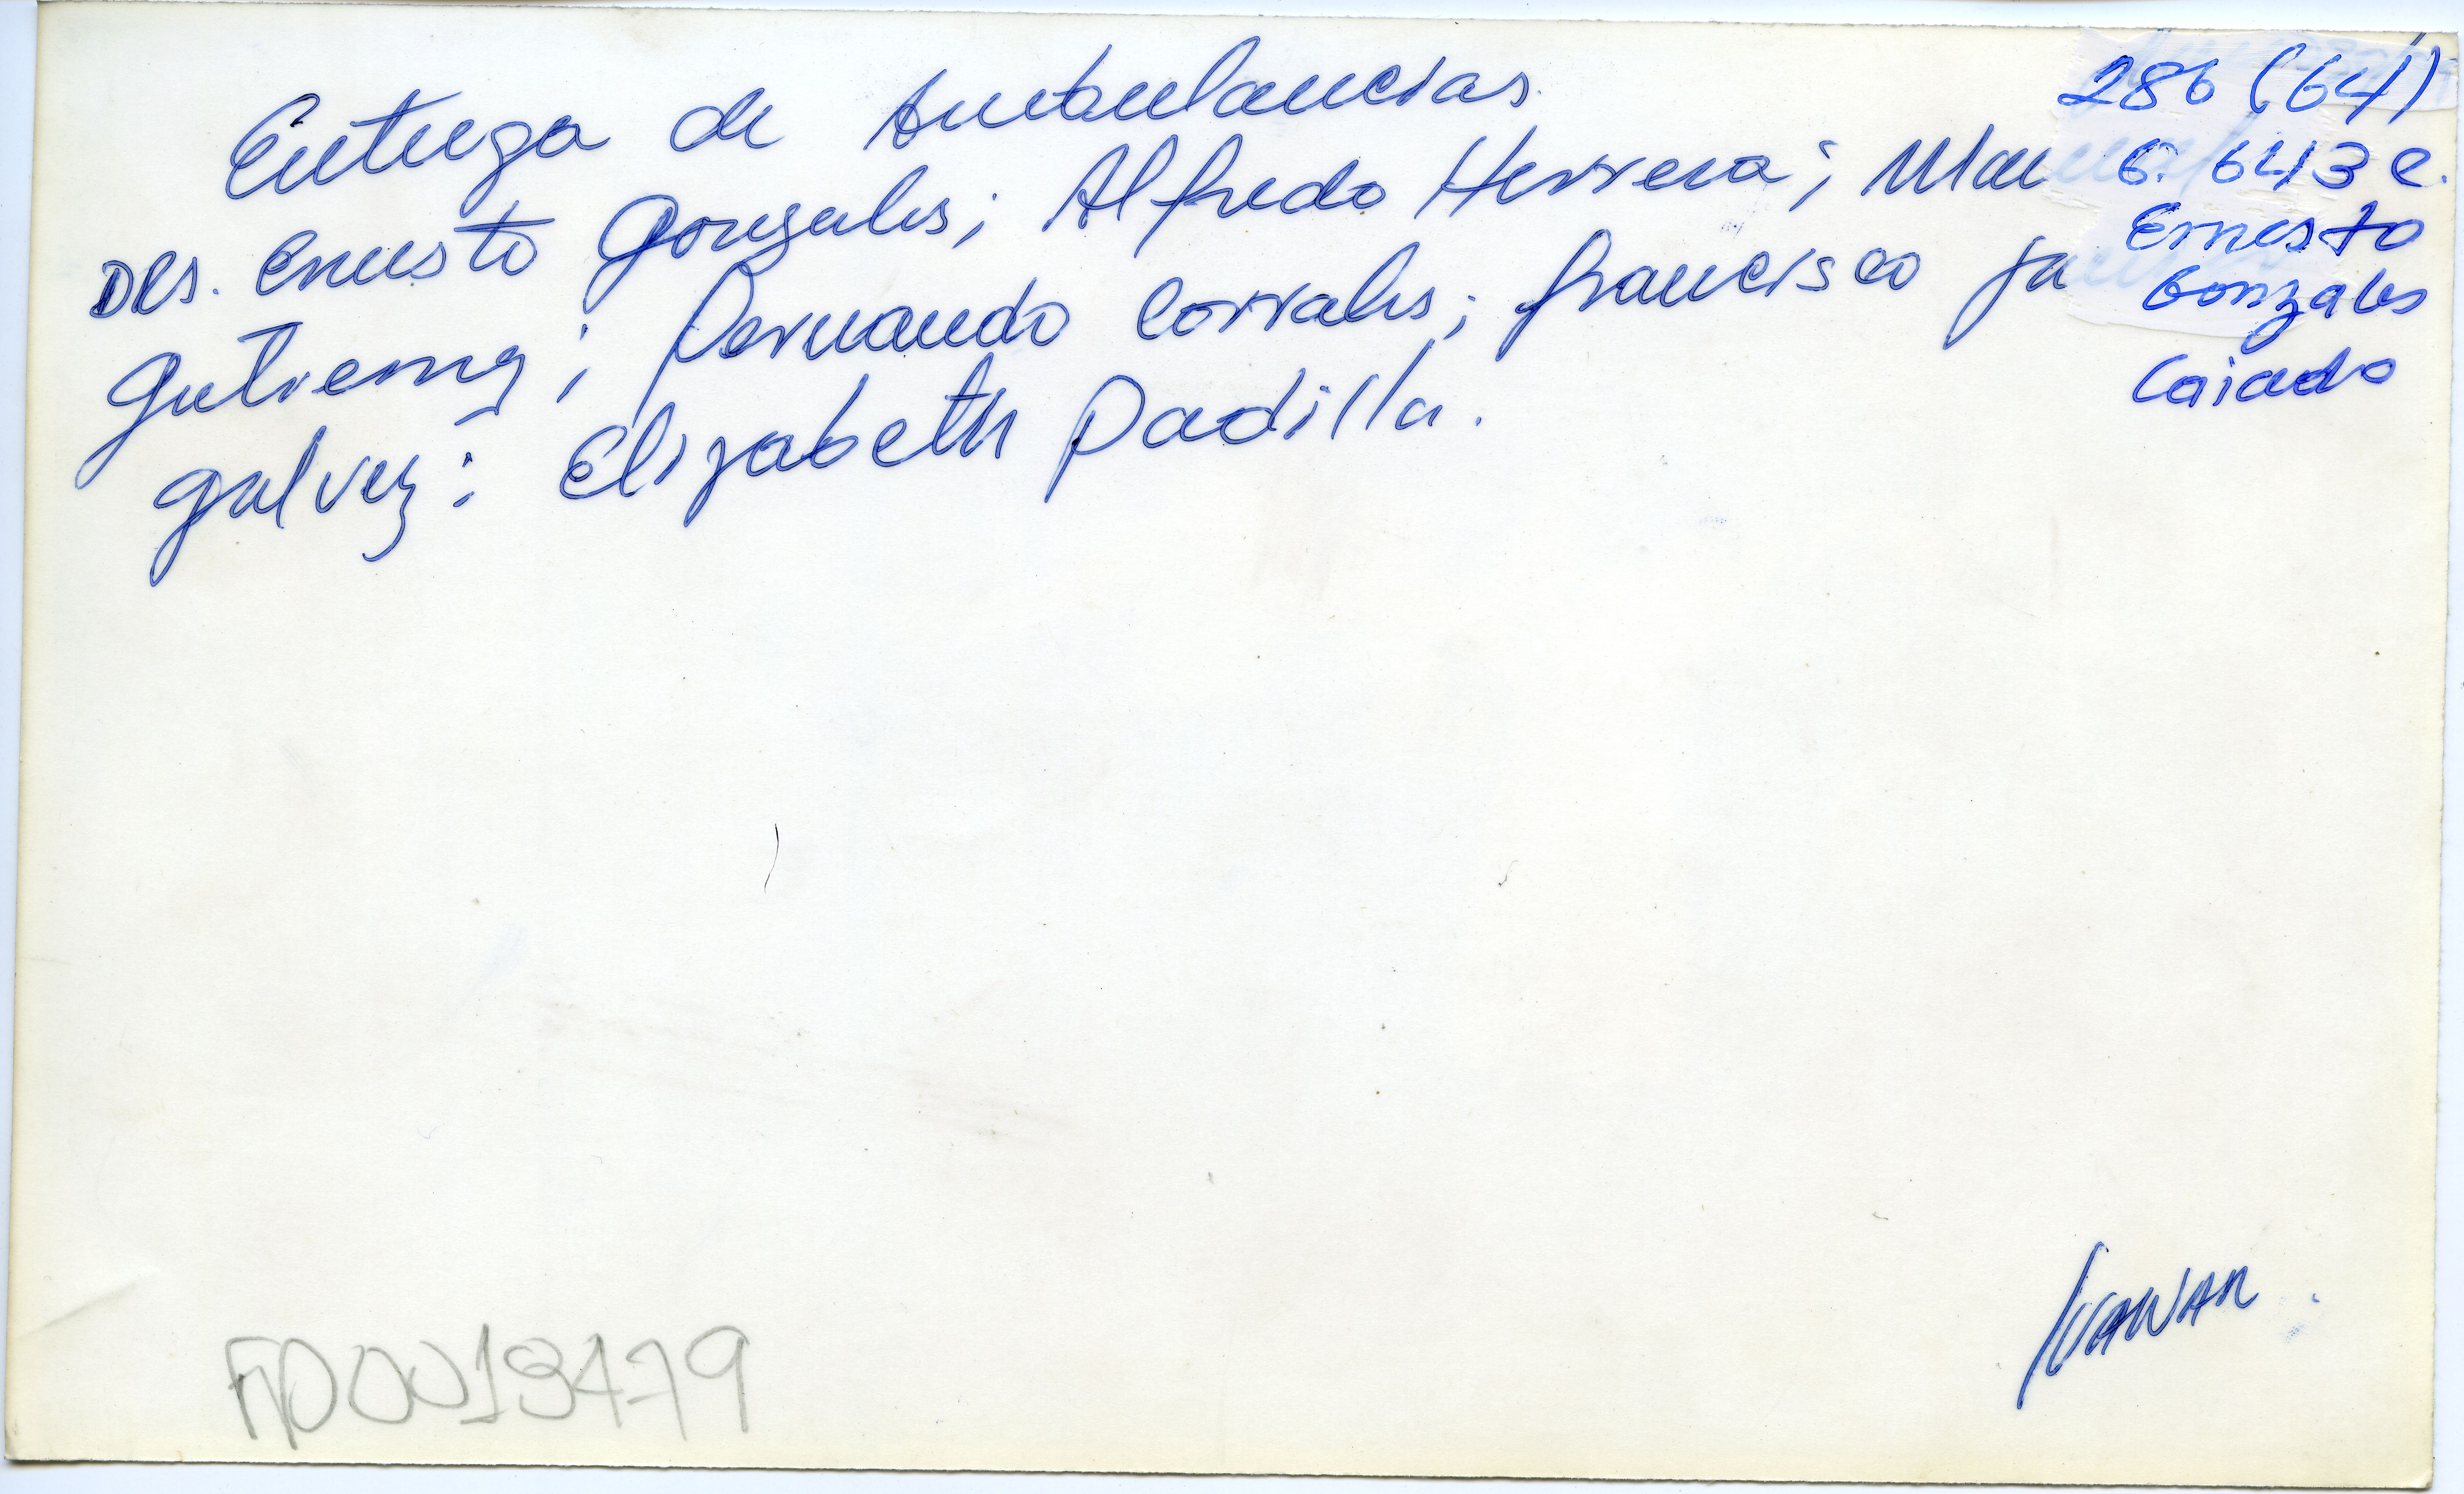 Entrega de Ambulancias.
DRS. Ernesto Gonzales; Alfredo Herrera; Man
Gutierrez; Fernando Corrales; francisco
galvez; Elizabeth Padilla.
286 (64)
G. 643 e.
Ernesto
Gonzales
Caiado